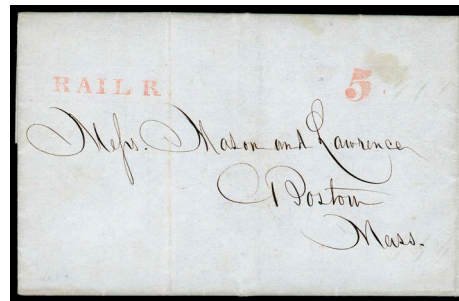 RAIL R 5
Messrs. Mason and Lawrence
Boston
Mass.